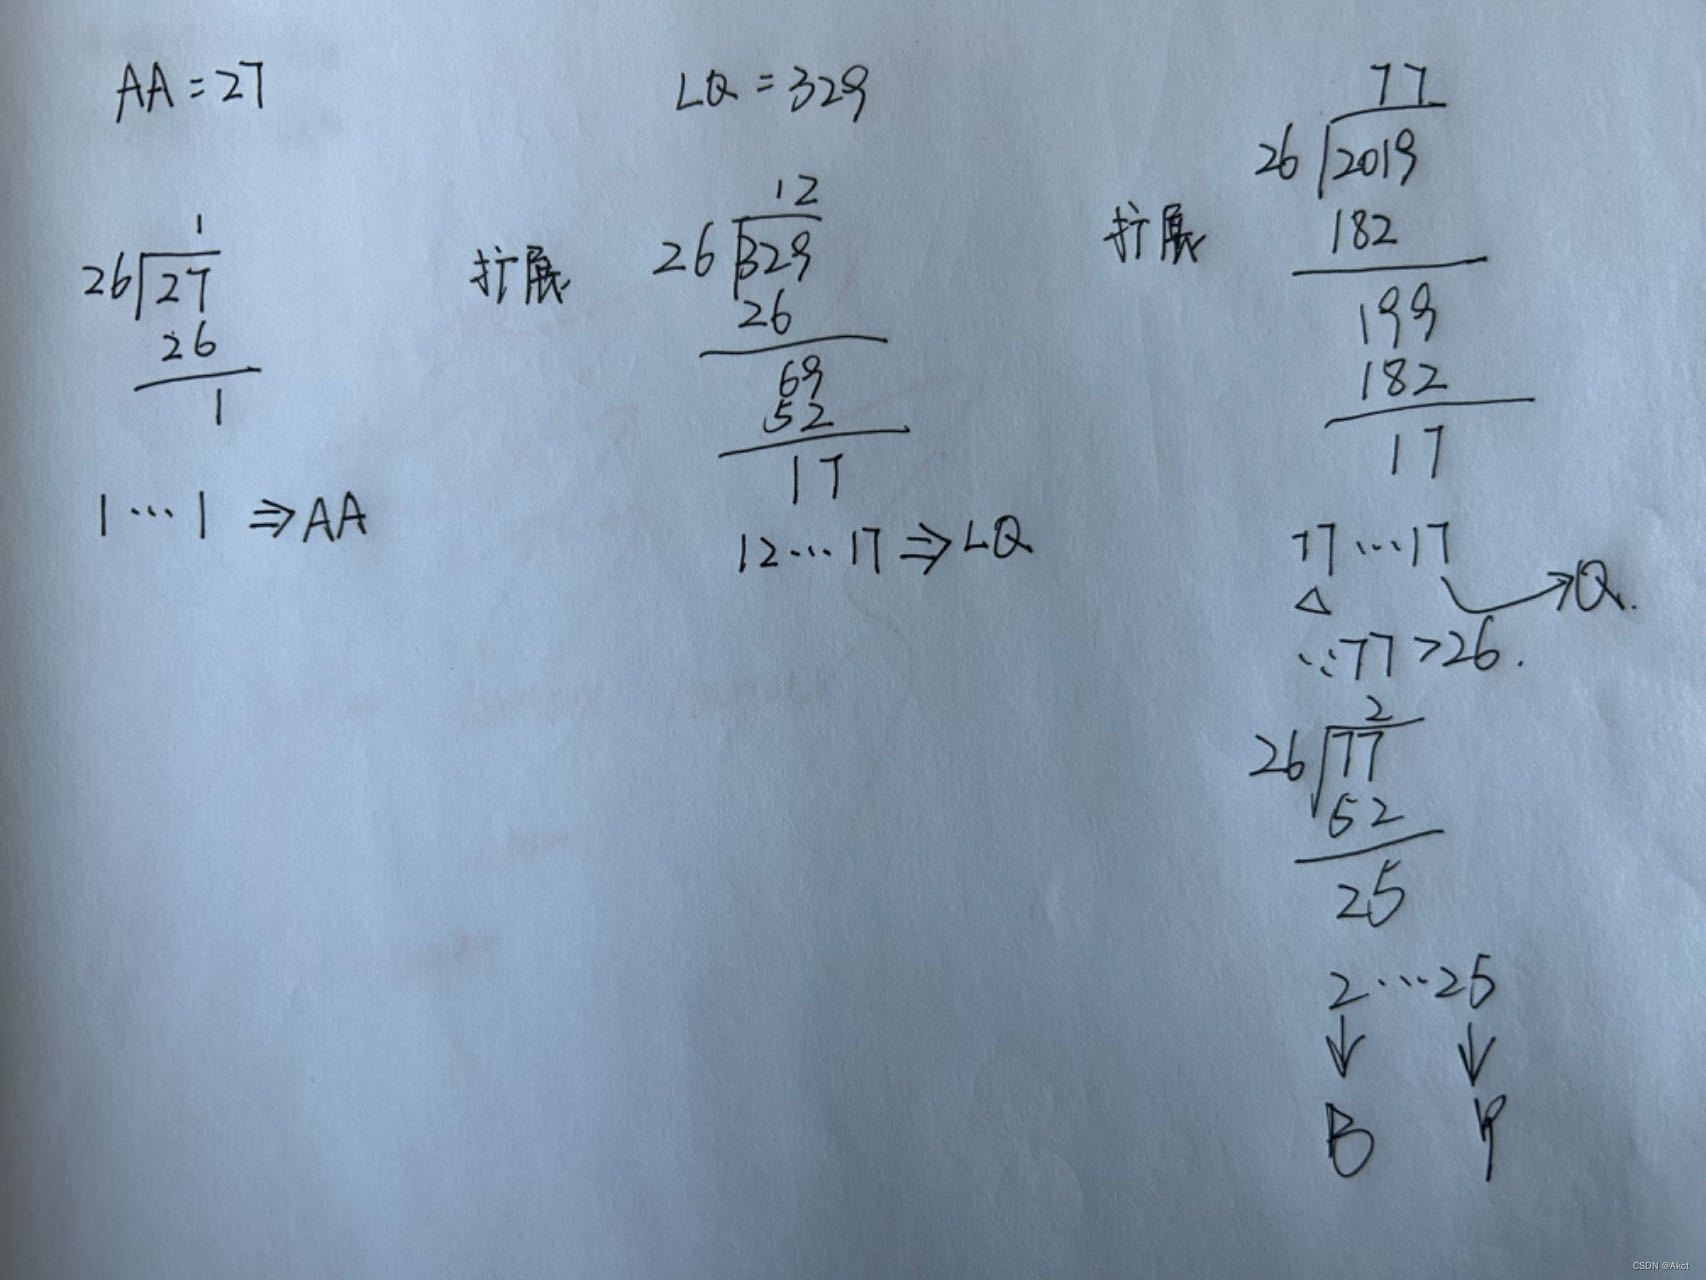 AA = 27
1
26 27
26
1
1 ... 1 ⇒ AA
LQ = 329
扩展
12
26 329
26
69
52
17
12 ... 17 ⇒ LQ
扩展
77
26 2019
182
199
182
17
77 ... 17 → Q.
△
∵ 77 > 26 .
2
26 77
52
25
2 ... 25
↓ ↓
B Y
CSDN @Akct